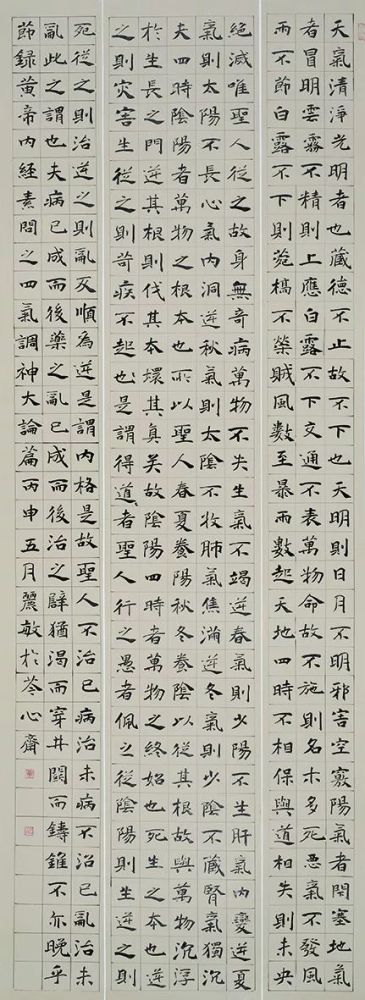 天氣清淨光明者也藏德不止故不下也天明則日月不明邪害空竅陽氣者閉塞地氣
者冒明雲霧不精則上應白露不下交通不表萬物命故不施則名木多死惡氣不發風
雨不節白露不下則菀槁不榮賊風數至暴雨數起天地四時不相保與道相失則未央
絕滅唯聖人從之故身無奇病萬物不失生氣不竭逆春氣則少陽不生肝氣內變逆夏
氣則太陽不長心氣內洞逆秋氣則太陰不收肺氣焦滿逆冬氣則少陰不藏腎氣獨沉
夫四時陰陽者萬物之根本也所以聖人春夏養陽秋冬養陰以從其根故與萬物沉浮
於生長之門逆其根則伐其本壞其真矣故陰陽四時者萬物之終始也死生之本也逆
之則災害生從之則苛疾不起也是謂得道者聖人行之愚者佩之從陰陽則生逆之則
死從之則治逆之則亂反順為逆是謂內格是故聖人不治已病治未病不治已亂治未
亂此之謂也夫病已成而後藥之亂已成而後治之辟猶渴而穿井鬭而鑄錐不亦晚乎
節録黃帝內經素問之四氣調神大論篇丙申五月麗敏於苓心齋